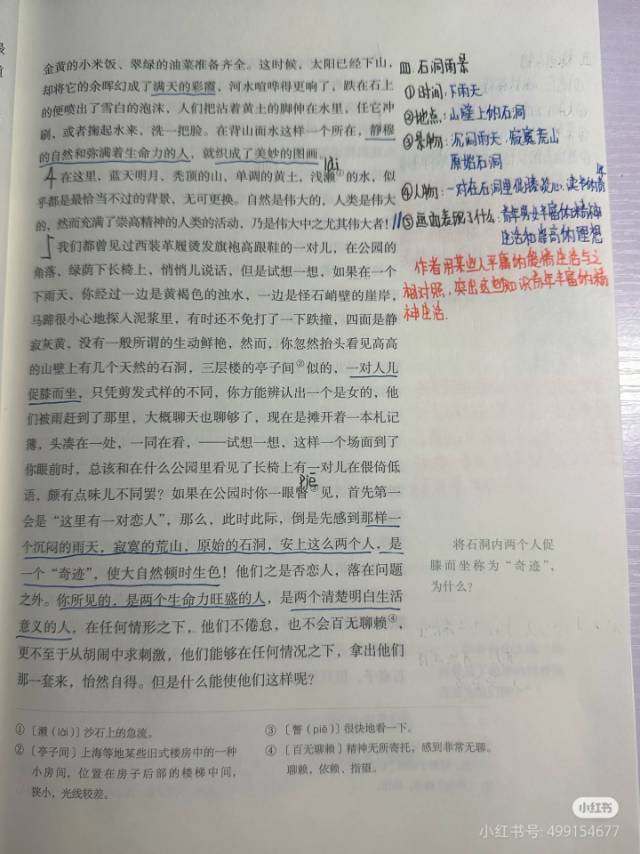 金黄的小米饭、翠绿的油菜准备齐全。这时候，太阳已经下山，
却将它的余晖幻成了满天的彩霞，河水喧哗得更响了，跌在石上
的便喷出了雪白的泡沫，人们把沾着黄土的脚伸在水里，任它冲
刷，或者掬起水来，洗一把脸。在背山面水这样一个所在，静穆
的自然和弥满着生命力的人，就织成了美妙的图画。
lài
4 在这里，蓝天明月，秃顶的山，单调的黄土，浅濑①的水，似
乎都是最恰当不过的背景，无可更换。自然是伟大的，人类是伟大
的，然而充满了崇高精神的人类的活动，乃是伟大中之尤其伟大者！
5 我们都曾见过西装革履烫发旗袍高跟鞋的一对儿，在公园的
角落，绿荫下长椅上，悄悄儿说话，但是试想一想，如果在一个
下雨天，你经过一边是黄褐色的浊水，一边是怪石峭壁的崖岸，
马蹄很小心地探入泥浆里，有时还不免打了一下跌撞，四面是静
寂灰黄，没有一般所谓的生动鲜艳，然而，你忽然抬头看见高高
的山壁上有几个天然的石洞，三层楼的亭子间②似的，一对人儿
促膝而坐，只凭剪发式样的不同，你方能辨认出一个是女的，他
们被雨赶到了那里，大概聊天也聊够了，现在是摊开着一本札记
簿，头凑在一处，一同在看，——试想一想，这样一个场面到了
你眼前时，总该和在什么公园里看见了长椅上有一对儿在偎倚低
语，颇有点味儿不同罢？如果在公园时你一眼瞥③见，首先第一
piē
会是“这里有一对恋人”，那么，此时此际，倒是先感到那样一
个沉闷的雨天，寂寞的荒山，原始的石洞，安上这么两个人，是
一个“奇迹”，使大自然顿时生色！他们之是否恋人，落在问题
之外。你所见的，是两个生命力旺盛的人，是两个清楚明白生活
意义的人，在任何情形之下，他们不倦怠，也不会百无聊赖④，
更不至于从胡闹中求刺激，他们能够在任何情况之下，拿出他们
那一套来，怡然自得。但是什么能使他们这样呢？
四.石洞雨景
①时间：下雨天
②地点：山崖上的石洞
③景物：沉闷雨天、寂寞荒山
原始石洞
④人物：一对在石洞里促膝谈心、读书的青年
⑤画面表现了什么：青年男女丰富的精神
生活和崇高的理想
作者用某些人平庸的爱情生活与之
相对照，突出这些知识青年丰富的精
神生活.
将石洞内两个人促
膝而坐称为“奇迹”，
为什么？
①〔濑（lài）〕沙石上的急流。
②〔亭子间〕上海等地某些旧式楼房中的一种
小房间，位置在房子后部的楼梯中间，
狭小，光线较差。
③〔瞥（piē）〕很快地看一下。
④〔百无聊赖〕精神无所寄托，感到非常无聊。
聊赖，依赖、指望。
小红书
小红书号: 499154677